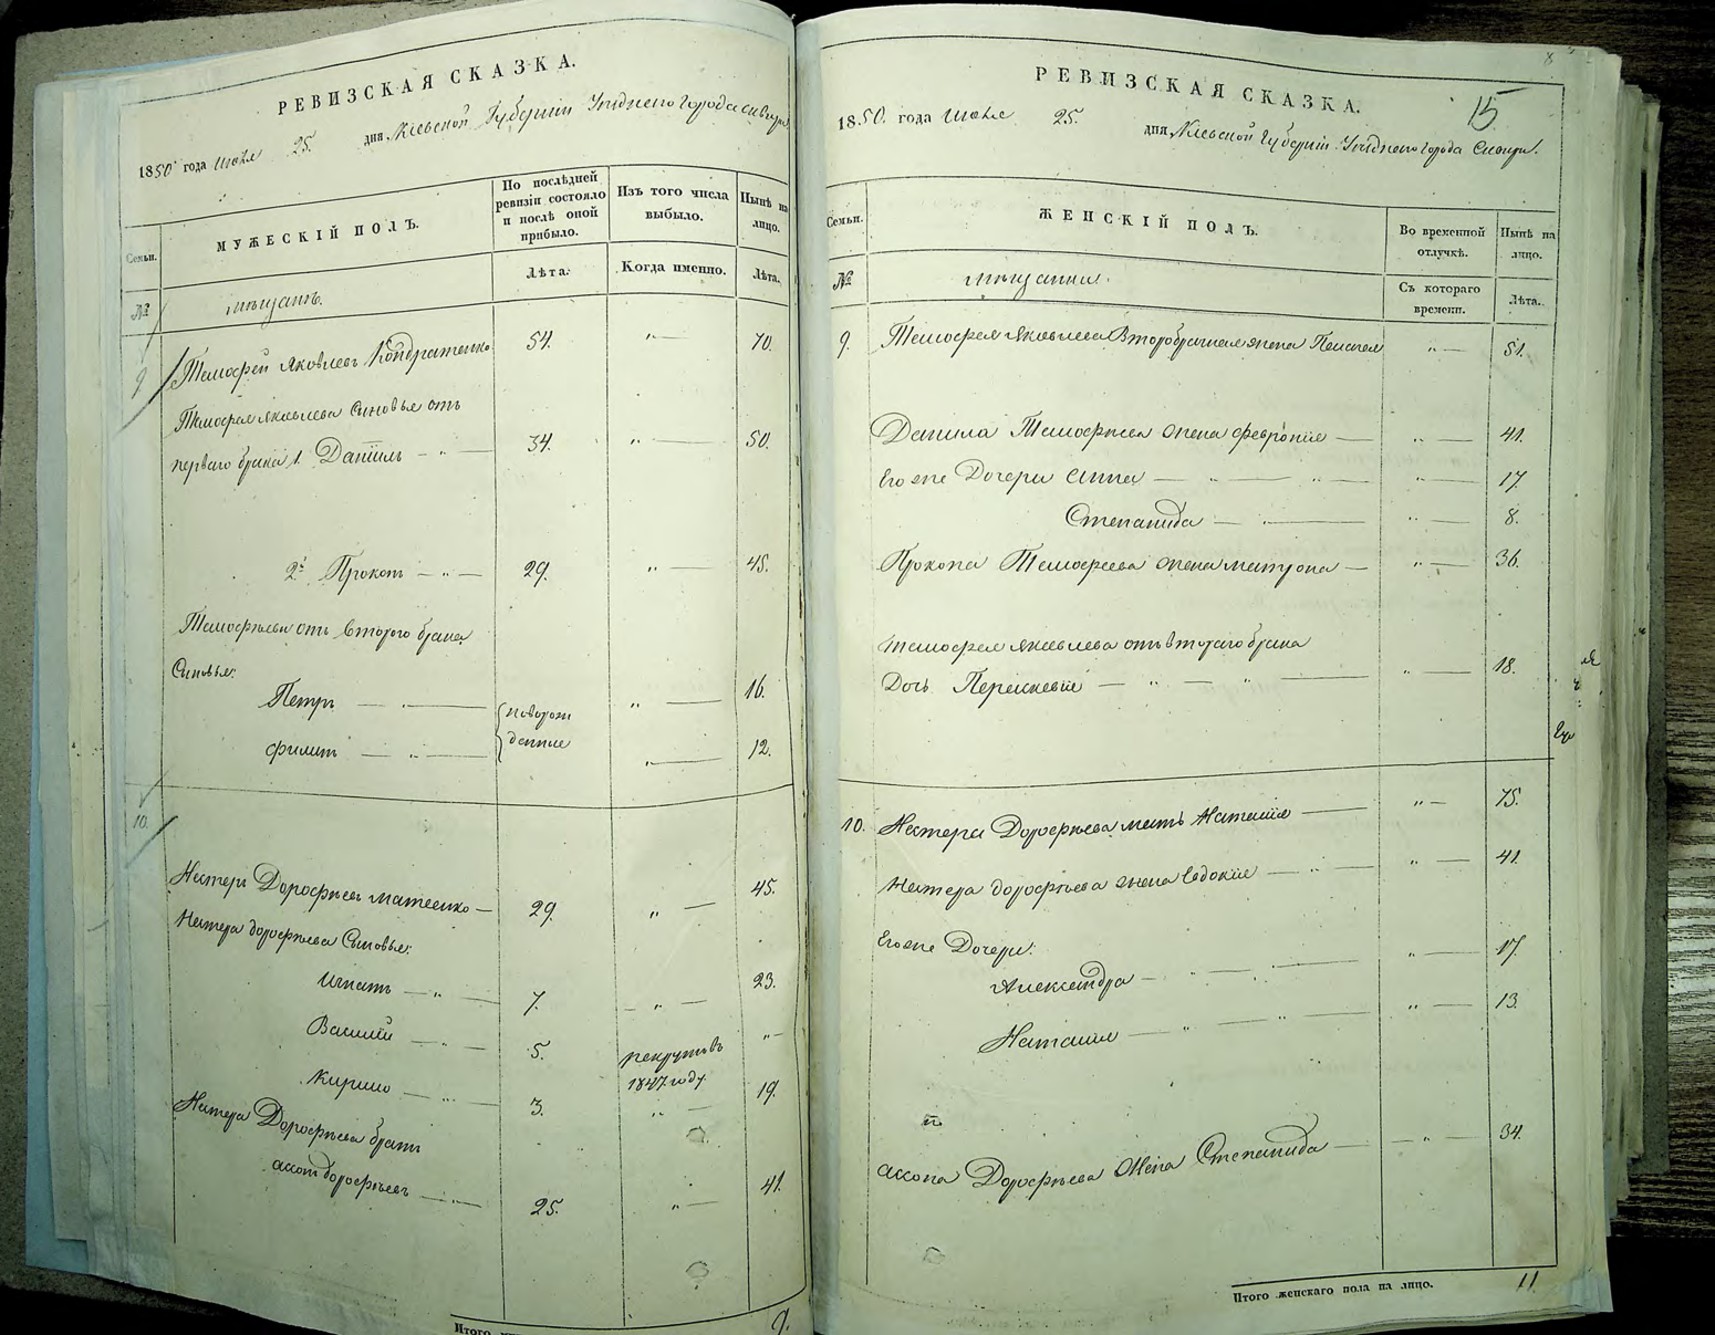 РЕВИЗСКАЯ СКАЗКА.
1850 года Июля 25. дня Кіевской Губерніи Уѣзднаго города Сквиры
Семьи.
МУЖЕСКІЙ ПОЛЪ.
По послѣдней ревизіи состояло и послѣ оной прибыло.
Изъ того числа выбыло.
Нынѣ на лицо.
№
мѣщанъ.
Лѣта.
Когда именно.
Лѣта.
9 Тимофей Яковлевъ Кондратенко 54. „ — 70.
Тимофея Яковлева Сыновья отъ
перваго брака 1. Даніилъ — „ — 34. „ — 50.
2й Прокопъ — „ — 29. „ — 45.
Тимофѣева отъ втораго брака
Сыновья:
Петръ — новорож „ — 16.
Филипъ — „ — денные „ — 12.
10.
Нестеръ Дорофѣевъ Матвенко — 29. „ — 45.
Нестера Дорофѣева Сыновья:
Игнатъ — „ — 7. — „ — 23.
Василій — „ — 5. рекрутъ въ 1847 году „
Кирило — „ — 3. „ — 19.
Нестера Дорофѣева братъ
Дорофѣевъ — 25. „ — 41.
Итого
9.
8
15
РЕВИЗСКАЯ СКАЗКА.
1850. года Июля 25. дня Кіевской Губерніи Уѣзднаго города Сквиры.
Семьи.
ЖЕНСКІЙ ПОЛЪ.
Во временной отлучкѣ.
Нынѣ на лицо.
№
мѣщанки.
Съ котораго времени.
Лѣта.
9. Тимофея Яковлева Второбрачная жена Пелагея „ — 51.
Данила Тимофѣева жена Февронія — „ — 41.
Его же Дочери Анна — „ — „ — „ — 17.
Степанида — „ — „ — 8.
Прокопа Тимофеева жена Матрона — „ — 36.
Тимофея Яковлева отъ втораго брака
Дочь Пераскевія — „ — „ — „ — 18.
10. Нестера Дорофѣева мать Наталія — „ — 75.
Нестера Дорофѣева жена Евдокія — „ — „ — 41.
Его же Дочери:
Александра — „ — „ — „ — 17.
Наталія — „ — „ — „ — 13.
Дорофѣева жена Степанида — — „ — 34.
Итого женскаго пола на лицо. 11.